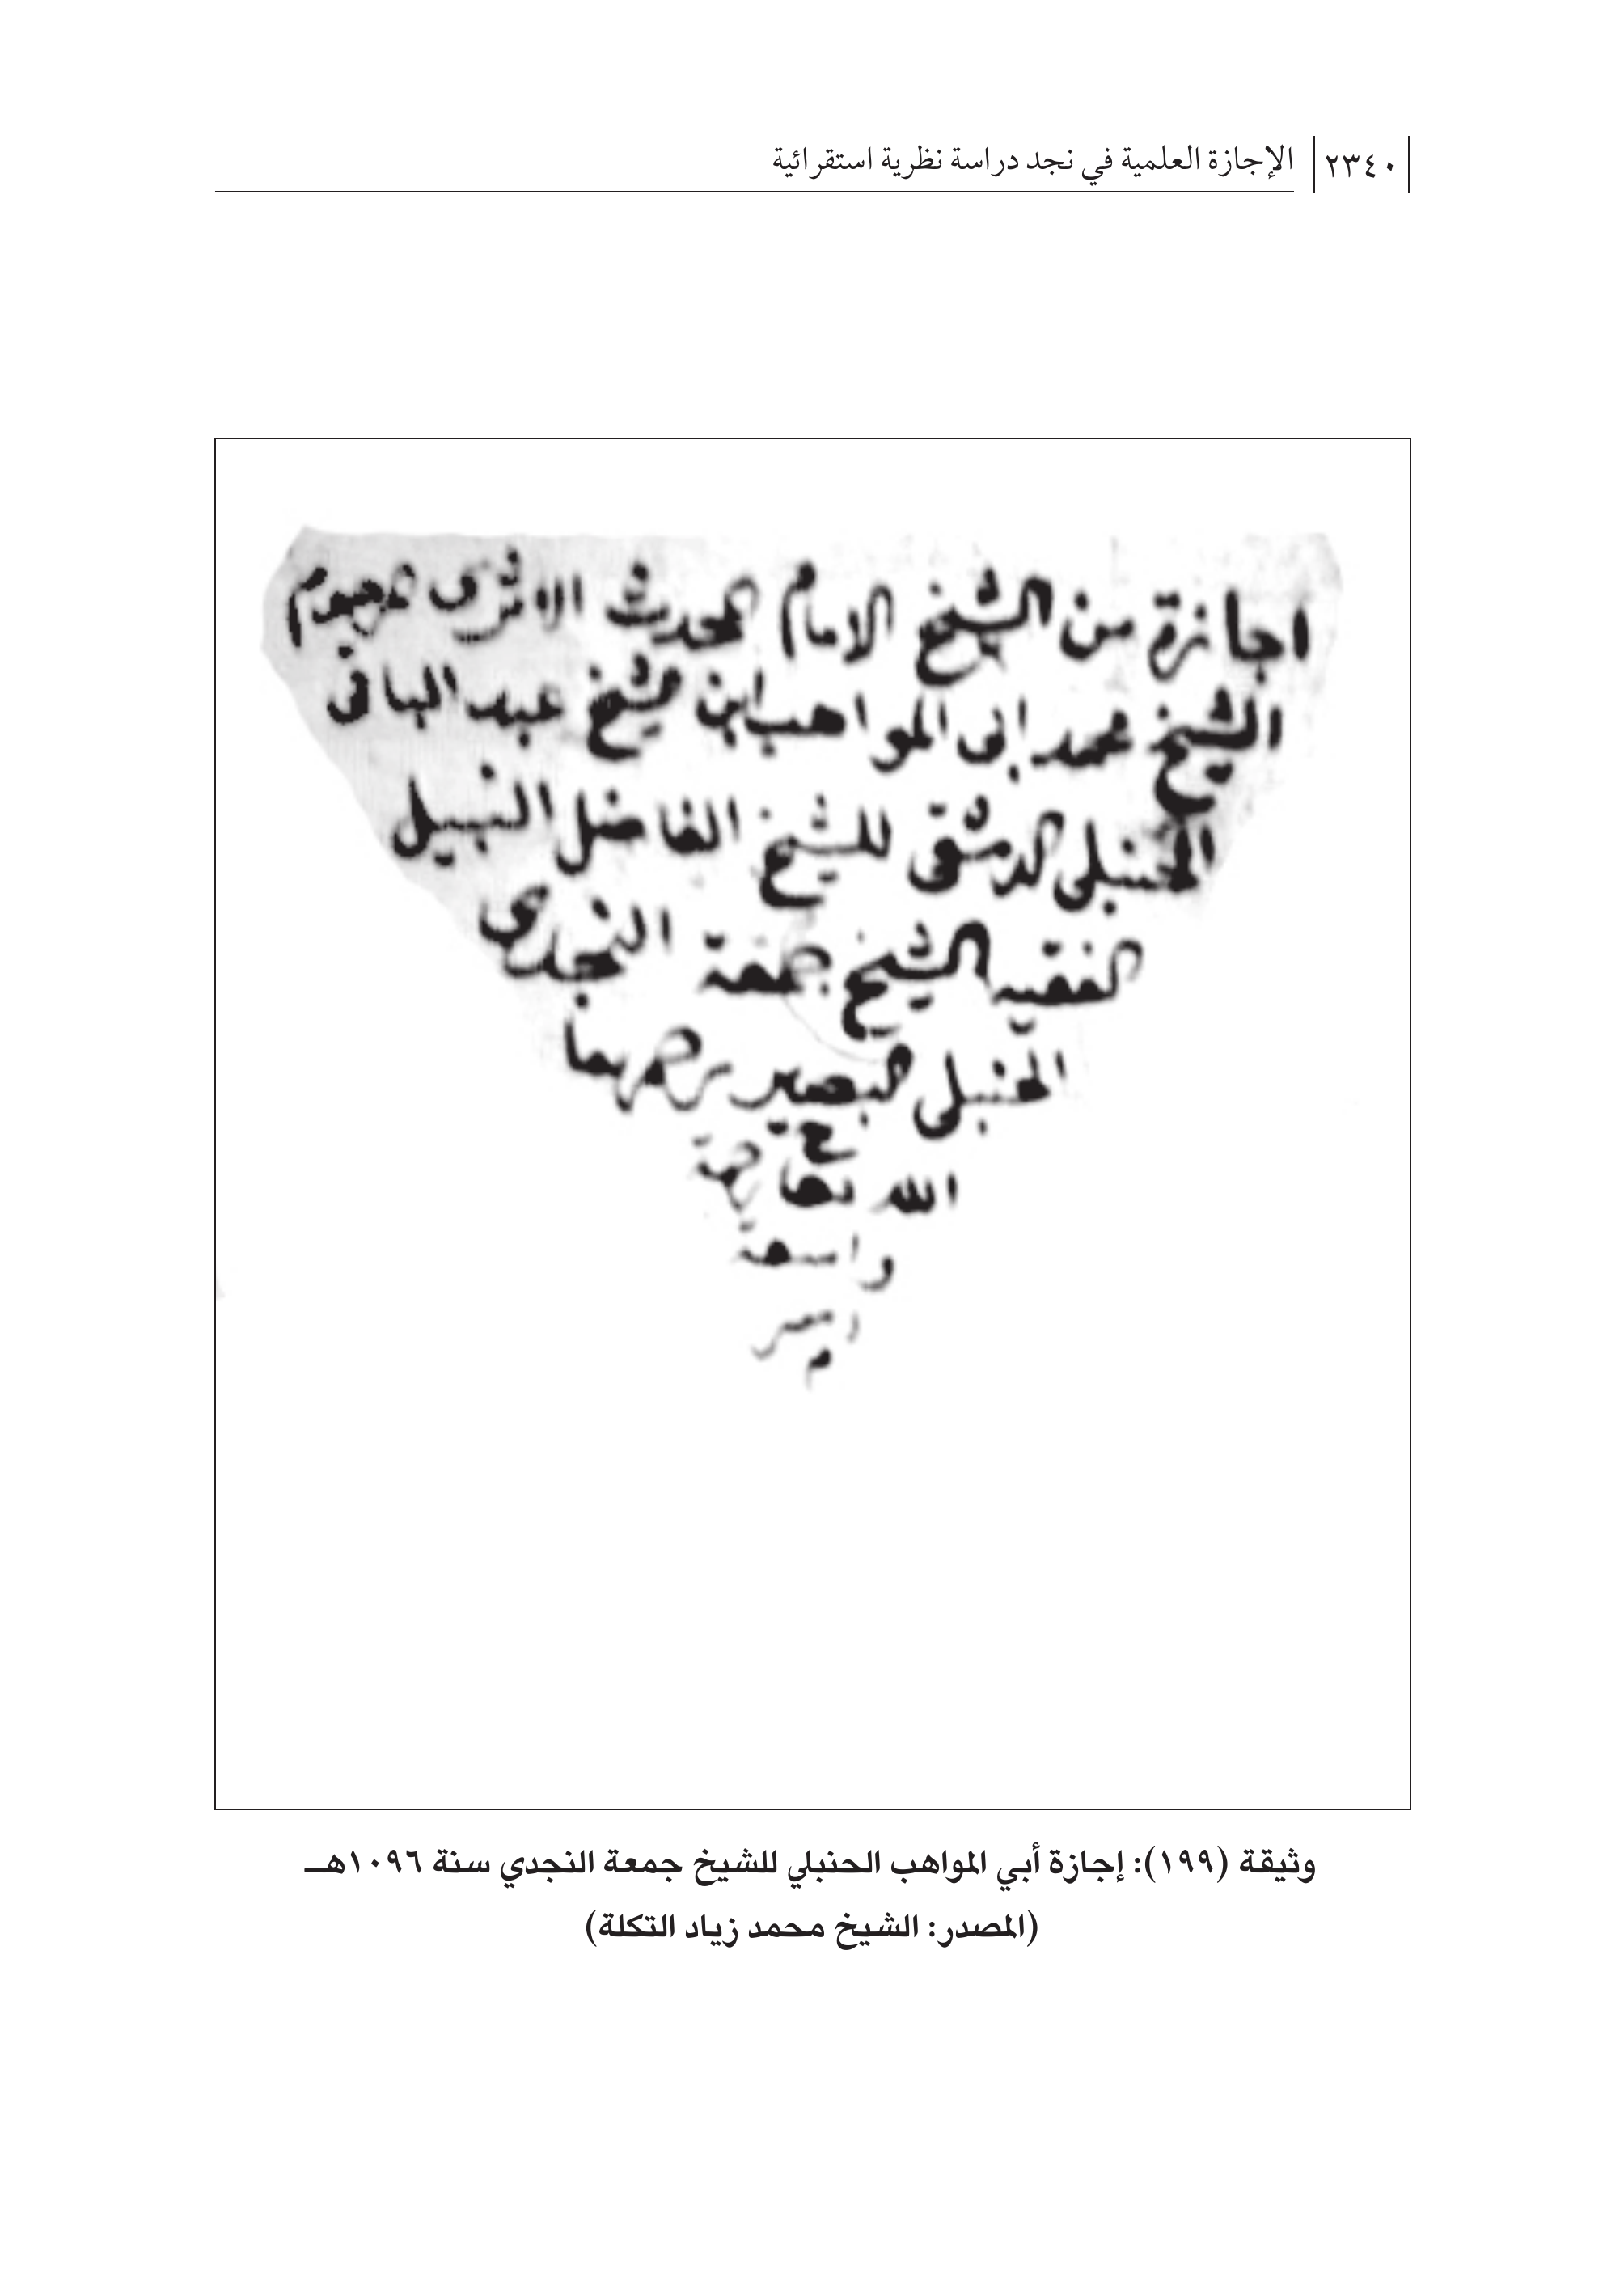 ٢٣٤٠
الإجازة العلمية في نجد دراسة نظرية استقرائية
اجازة من الشيخ الامام المحدث الاثرى
الشيخ محمد ابى المواهب ابن الشيخ عبد الباقى
الحنبلى الدمشقى للشيخ الفاضل النبيل
الفقيه الشيخ جمعة النجدى
الحنبلى البصير رحمهما
الله تعالى رحمة
واسعة
امين
م
وثيقة (١٩٩): إجازة أبي المواهب الحنبلي للشيخ جمعة النجدي سنة ١٠٩٦هـ
(المصدر: الشيخ محمد زياد التكلة)